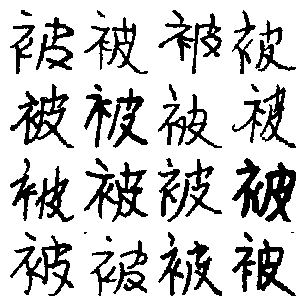 被被被被
被被被被
被被被被
被被被被